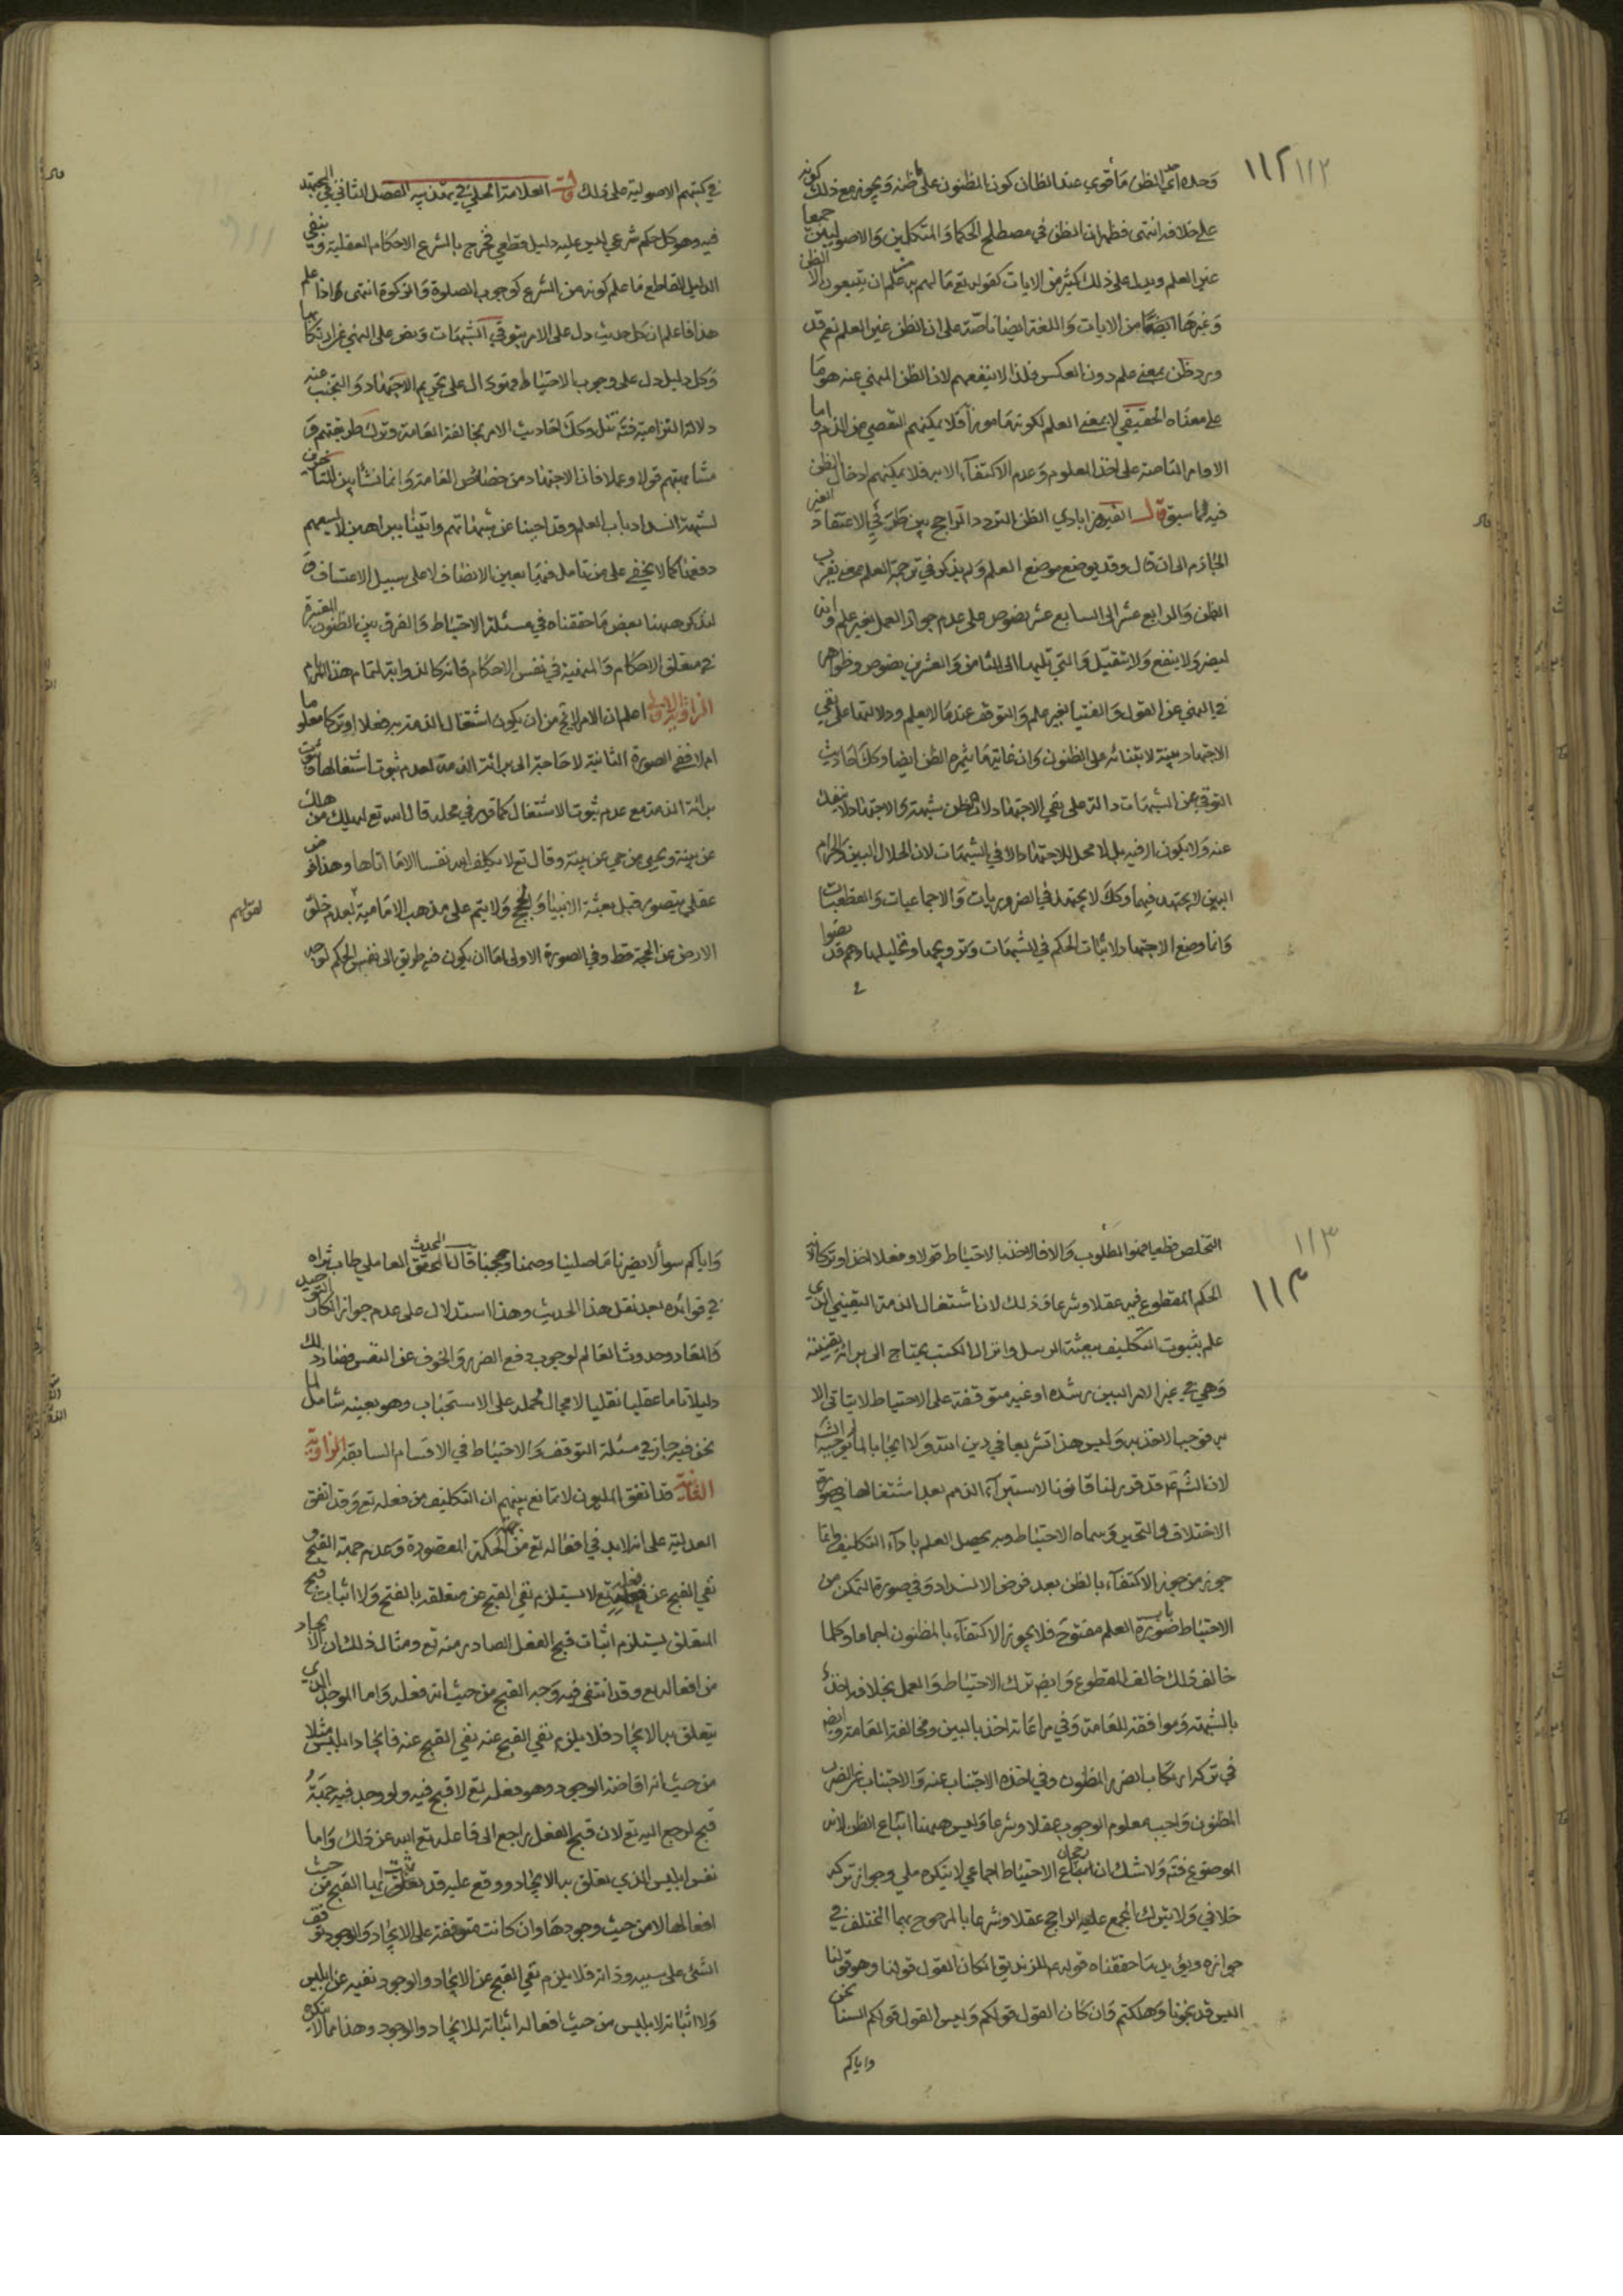 ١١٢ ١١٢
وحده اي الظن ما قوي عند الظان كون المظنون على ظنه ويجوز مع ذلك كونه
على خلافه انتهى فظهر ان الظن في مصطلح الحكما والمتكلمين والاصوليين جمعا
غير العلم ويدل على ذلك كثير من الايات كقوله تع ما لهم به من علم ان يتبعون الا الظن
وغيرها من الايات واللغة ايضا ناصة على ان الظن غير العلم نعم قد
ورد ظن بمعنى علم دون العكس فلذا لا ينفعهم لان الظن المنهي عنه هو ما
على معناه الحقيقي لا بمعنى العلم لكونه مامورا فلا يمكنهم التفصي عن الذم واما
الاوامر الناصة على اخذ العلوم وعدم الاكتفاء الا به فلا يمكنهم ادخال الظن
فيه لما سبق قال الفيروزابادي الظن التردد الراجح بين طرفي الاعتقاد الغير
الجازم الى ان قال وقد يوضع موضع العلم ولم يذكر في ترجمة العلم بمعنى يقرب
الظن والرابع عشر الى السابع عشر نصوص على عدم جواز العمل بغير علم وانه
ليضر ولا ينفع ولا يتقبل والتي تليها الى الثامن والعشرين نصوص وظواهر
في النهي عن القول والفتيا بغير علم والتوقف عند ما لا يعلم ودلالتها على نفي
الاجتهاد بينة لابتنائه على الظنون وان غاية ما يثمره الظن ايضا وكك احاديث
التوقف عن الشبهات دالة على نفي الاجتهاد لان الظن شبهة والاجتهاد لا ينفك
عنه ولا يكون الا فيه بل لا محل للاجتهاد الا في الشبهات لان الحلال البين والحرام
البين لا يجتهد فيهما وكك لا يجتهد في الضروريات والاجماعيات والقطعيات
وانما وضع الاجتهاد لاثبات الحكم في الشبهات وترويجها وتحليلها وهم قد نصوا
في كتبهم الاصولية على ذلك قال العلامة الحلي في تهذيبه الفصل الثاني في المجتهد
فيه وهو كل حكم شرعي ليس عليه دليل قطعي فخرج بالشرع الاحكام العقلية وبنفي
الدليل القاطع ما علم كونه من الشرع كوجوب الصلوة والزكوة انتهى واذا علم
هذا فاعلم ان كل حديث دل على الامر بتوقي الشبهات ونص على النهي عن ارتكابها
وكل دليل دل على وجوب الاحتياط فهو دال على تحريم الاجتهاد والتجنب عنه
دلالة التزامية فتامل وكك احاديث الامر بمخالفة العامة وترك طريقتهم و
مشابهتهم قولا وعملا فان الاجتهاد من خصائص العامة وانما نشأ بين المتاخرين
لشبهة انسداد باب العلم وقد اجبنا عن شبهاتهم واتينا ببراهين لا يسعهم
دفعها كما لا يخفى على من تامل فيها بعين الانصاف لا على سبيل الاعتساف و
لنذكر ههنا بعض ما حققناه في مسئلة الاحتياط والفرق بين الظنون المعتبرة
في متعلق الاحكام والمنفية في نفس الاحكام فانه كالذوابة لتمام هذا المرام
الزاوية الاولى اعلم ان الامر لا يخ من ان يكون اشتغال الذمة به فعلا او تركا معلوما
ام لا ففي الصورة الثانية لا حاجة الى برائة الذمة لعدم ثبوت اشتغالها وثبوت
برائة الذمة مع عدم ثبوت الاشتغال كما قرر في محله قال الله تع ليهلك من هلك
عن بينة ويحيى من حي عن بينة وقال تع لا يكلف الله نفسا الا ما اتاها وهذا فرض
عقلي يتصور قبل بعثة الانبيا والحجج ولا يتم على مذهب الامامية لعدم خلو
الارض عن الحجة قط وفي الصورة الاولى اما ان يكون فيه طريق الى نفس الحكم
١١٣
١١٣
التخلص قطعيا فهو المطلوب والا فالاخذ بالاحتياط قولا وفعلا اخذا وتركا فانه
الحكم المقطوع فيه عقلا وشرعا وذلك لان اشتغال الذمة اليقيني الذي
علم بثبوت التكليف ببعثة الرسل وانزال الكتب يحتاج الى برائة يقينية
وهي في غير الامر البين رشده او غيه متوقفة على الاحتياط لا يتاتى الا
به فوجب الاخذ به وليس هذا تشريعا في دين الله ولا ايجابا لما لم يوجبه الشه
لان الشه قد قرر لنا قانونا لاستبراء الذمم بعد اشتغالها في صورة
الاختلاف والتحير وسماه الاحتياط وبه يحصل العلم باداء التكليف وانما
جوز من جوز الاكتفاء بالظن بعد فرض الانسداد وفي صورة التمكن من
الاحتياط باب العلم مفتوح فلا يجوز الاكتفاء بالمظنون اجماعا وكلما
خالف ذلك خالف المقطوع وايضا ترك الاحتياط والعمل بخلافه اخذ
بالشبهة وموافقة للعامة وفي مراعاته اخذ بالبين ومخالفة العامة وايضا
في تركه ارتكاب الضرر المظنون وفي اخذه الاجتناب عنه والاجتناب عن الضرر
المظنون واجب معلوم الوجوب عقلا وشرعا وليس ههنا اتباع الظن لانه
الموضوع فته ولا شك ان رجحان الاحتياط اجماعي لا ينكره ملي وجواز تركه
خلافي ولا يترك المجمع عليه الراجح عقلا وشرعا بالمرجوح بهما المختلف في
جوازه ويؤيد ما حققناه قوله ع للزنديق ان كان القول قولنا وهو قولنا
اليس قد نجونا وهلكتم وان كان القول قولكم وليس القول قولكم السنا نحن
واياكم
واياكم سواء لا يضرنا ما صلينا وصمنا وحججنا قال المحقق المحدث العاملي طاب ثراه
في فوائده بعد نقل هذا الحديث وهذا استدلال على عدم جواز انكار التوحيد
والمعاد وحدوث العالم لوجوب دفع الضرر والخوف عن النفس فصار ذلك
دليلا تاما عقليا نقليا لا مجال لحمله على الاستحباب وهو بعينه شامل لما
نحن فيه جار في مسئلة التوقف والاحتياط في الاقسام السابقة الزاوية
الثانية قد اتفق المليون لا تمانع بينهم ان التكليف من فعله تع وقد اتفق
العدلية على انه لابد في افعاله تع من جهة الحكمة المقصودة وعدم جهة القبح و
نفي القبح عن فعله تع لا يستلزم نفي القبح عن متعلقه بالفتح ولا اثبات قبح
المتعلق يستلزم اثبات قبح الفعل الصادر منه تع ومثال ذلك ان الايجاد
من افعاله تع وقد انتفى فيه وجه القبح من حيث انه فعله واما الموجد الذي
يتعلق به الايجاد فلا يلزم نفي القبح عنه نفي القبح عنه فايجاد ابليس مثلا
من حيث انه افاضة الوجود وهو فعله تع لا قبح فيه ولو وجد فيه جهة
قبح لرجع اليه تع لان قبح الفعل يراجع الى فاعله تع الله عن ذلك واما
نفس ابليس الذي تعلق به الايجاد ووقع عليه قد ثبت لها القبح من حيث
افعالها لا من حيث وجودها وان كانت متوقفة على الايجاد والوجود توقف
الشئ على سببه وذاته فلا يلزم نفي القبح عن الايجاد والوجود نفيه عن ابليس
ولا اثباته لابليس من حيث افعاله اثباته للايجاد والوجود وهذا مما لا ينكره